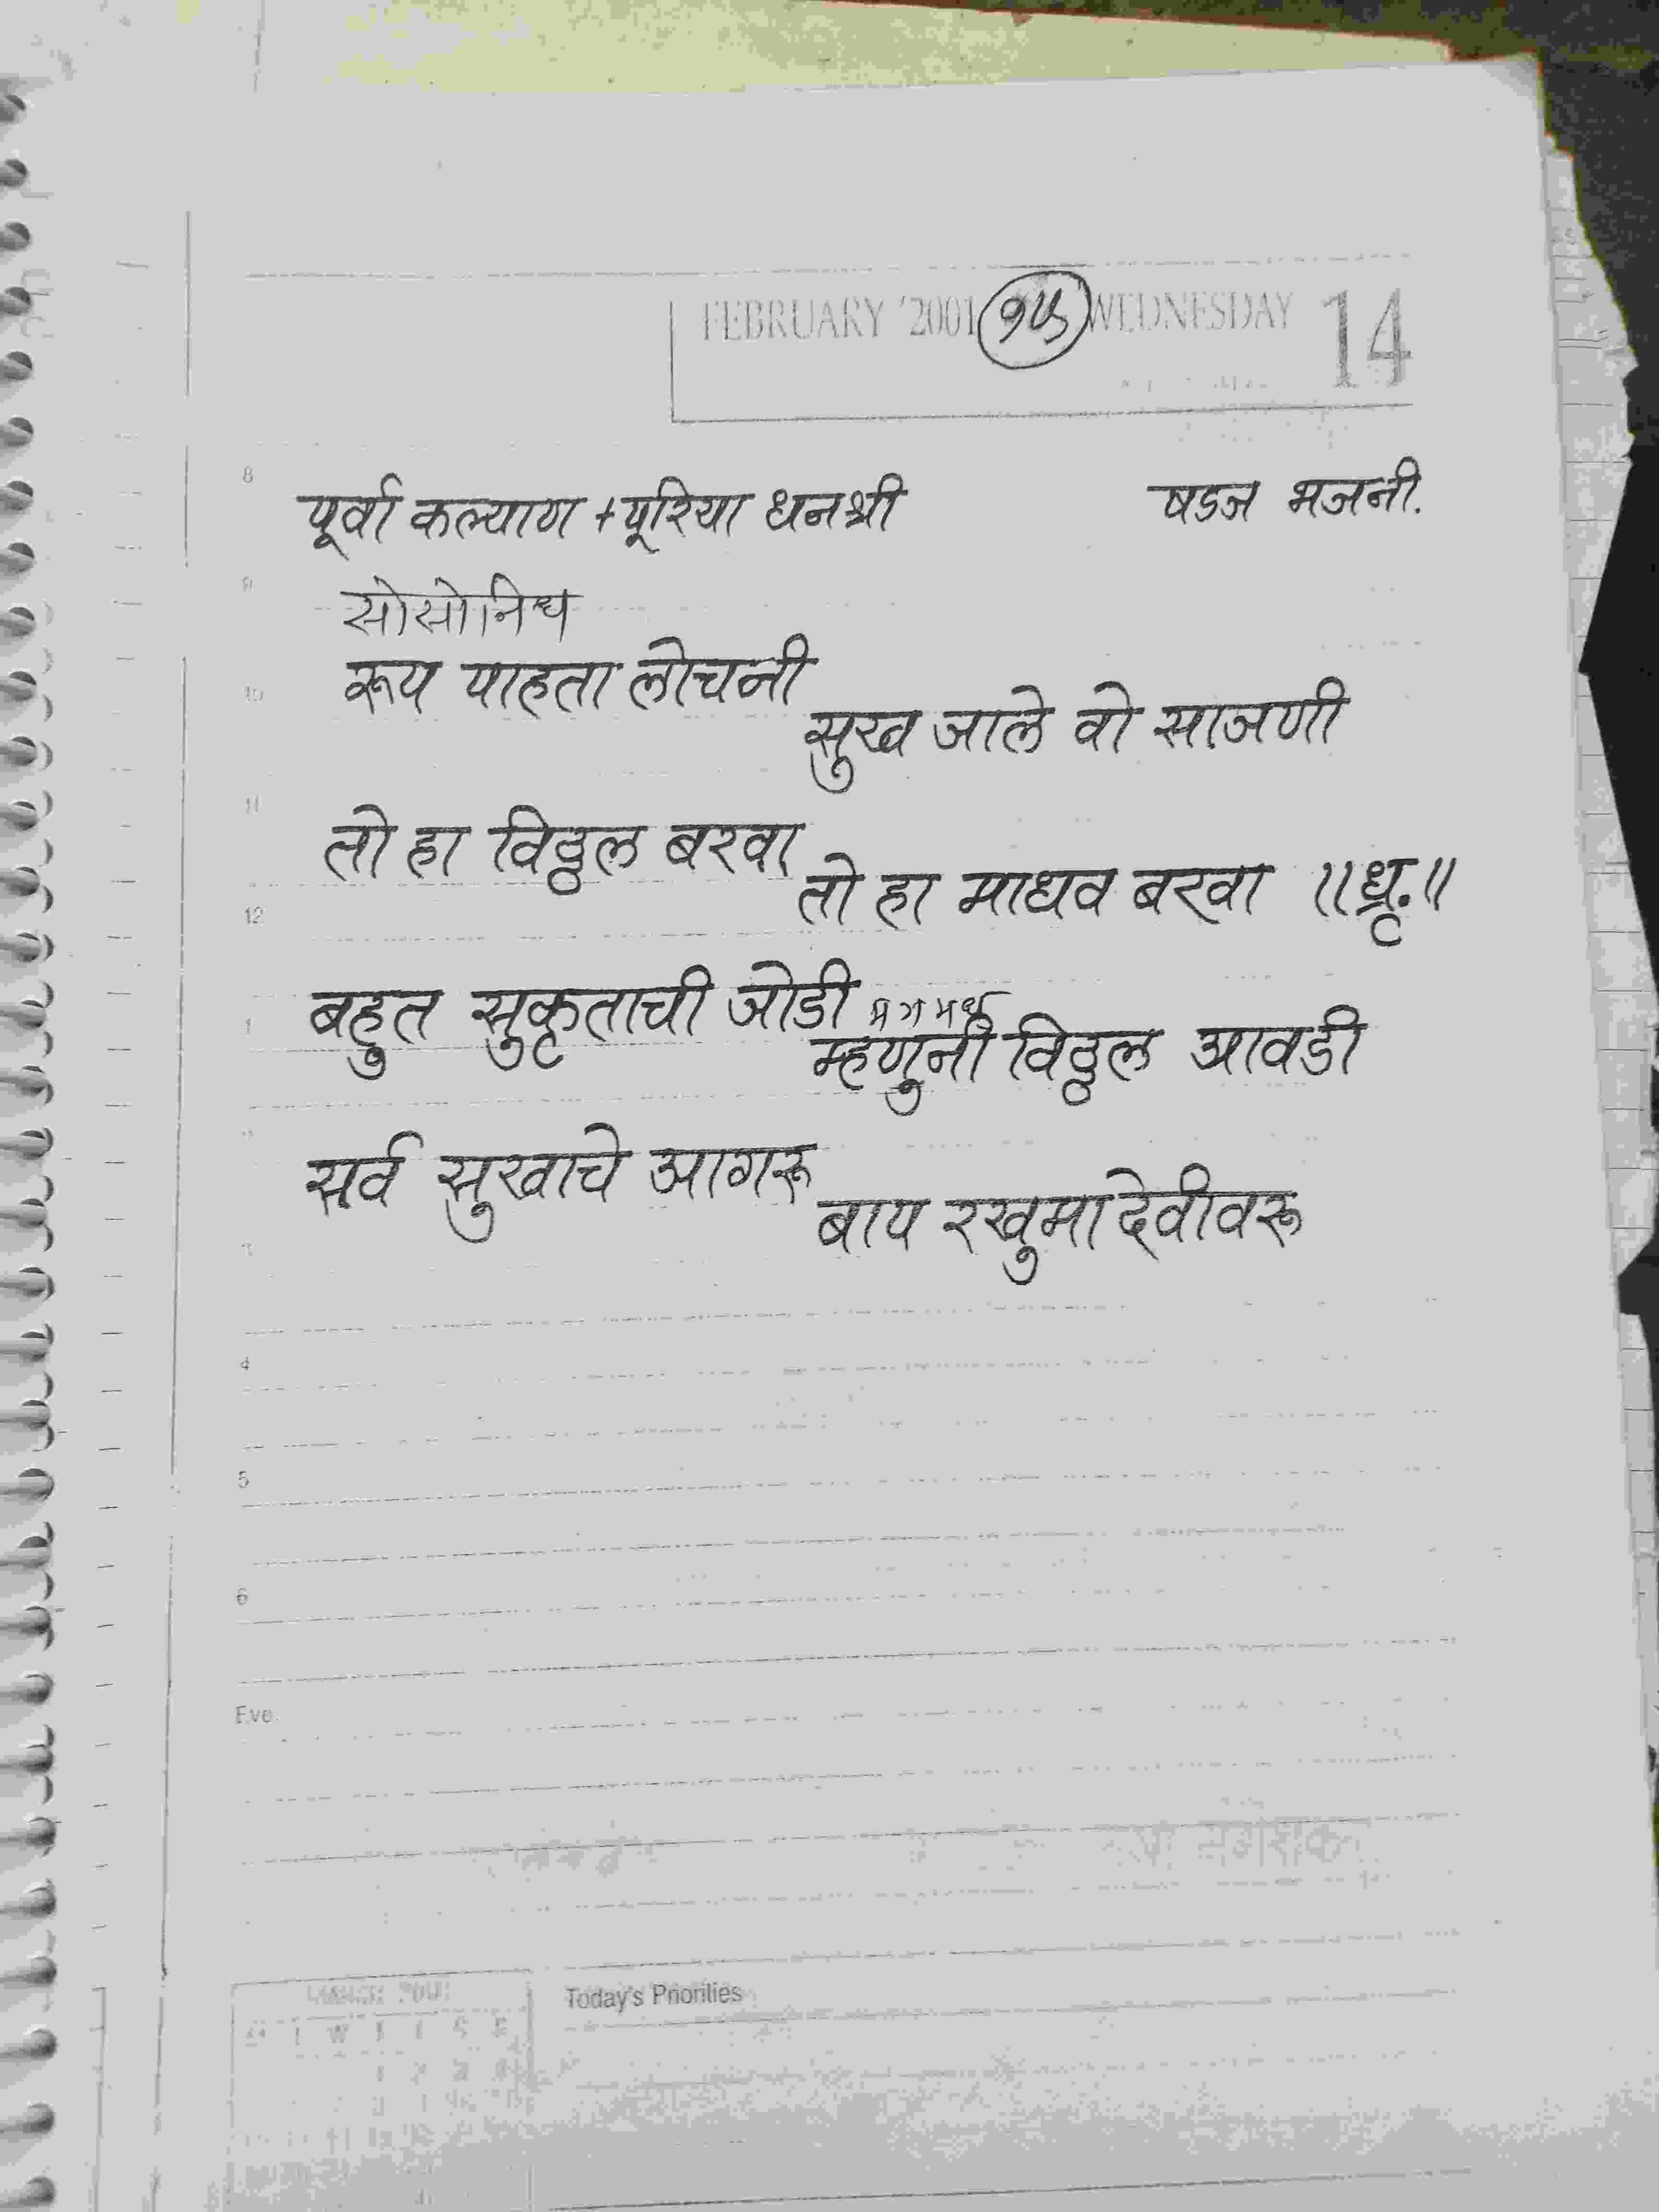 FEBRUARY '2001 १५ WEDNESDAY 14
8
पूर्वा कल्याण + पूरिया धनश्री षडज भजनी.
9
सोसोनिध
10
रूप पाहता लोचनी
सुख जाले वो साजणी
11
तो हा विठ्ठल बरवा
तो हा माधव बरवा ॥धृ.॥
12
बहुत सुकृताची जोडी
मगमध
1
म्हणुनी विठ्ठल आवडी
सर्व सुखाचे आगरू
बाप रखुमादेवीवरू
3
4
5
6
Eve.
Today's Priorities